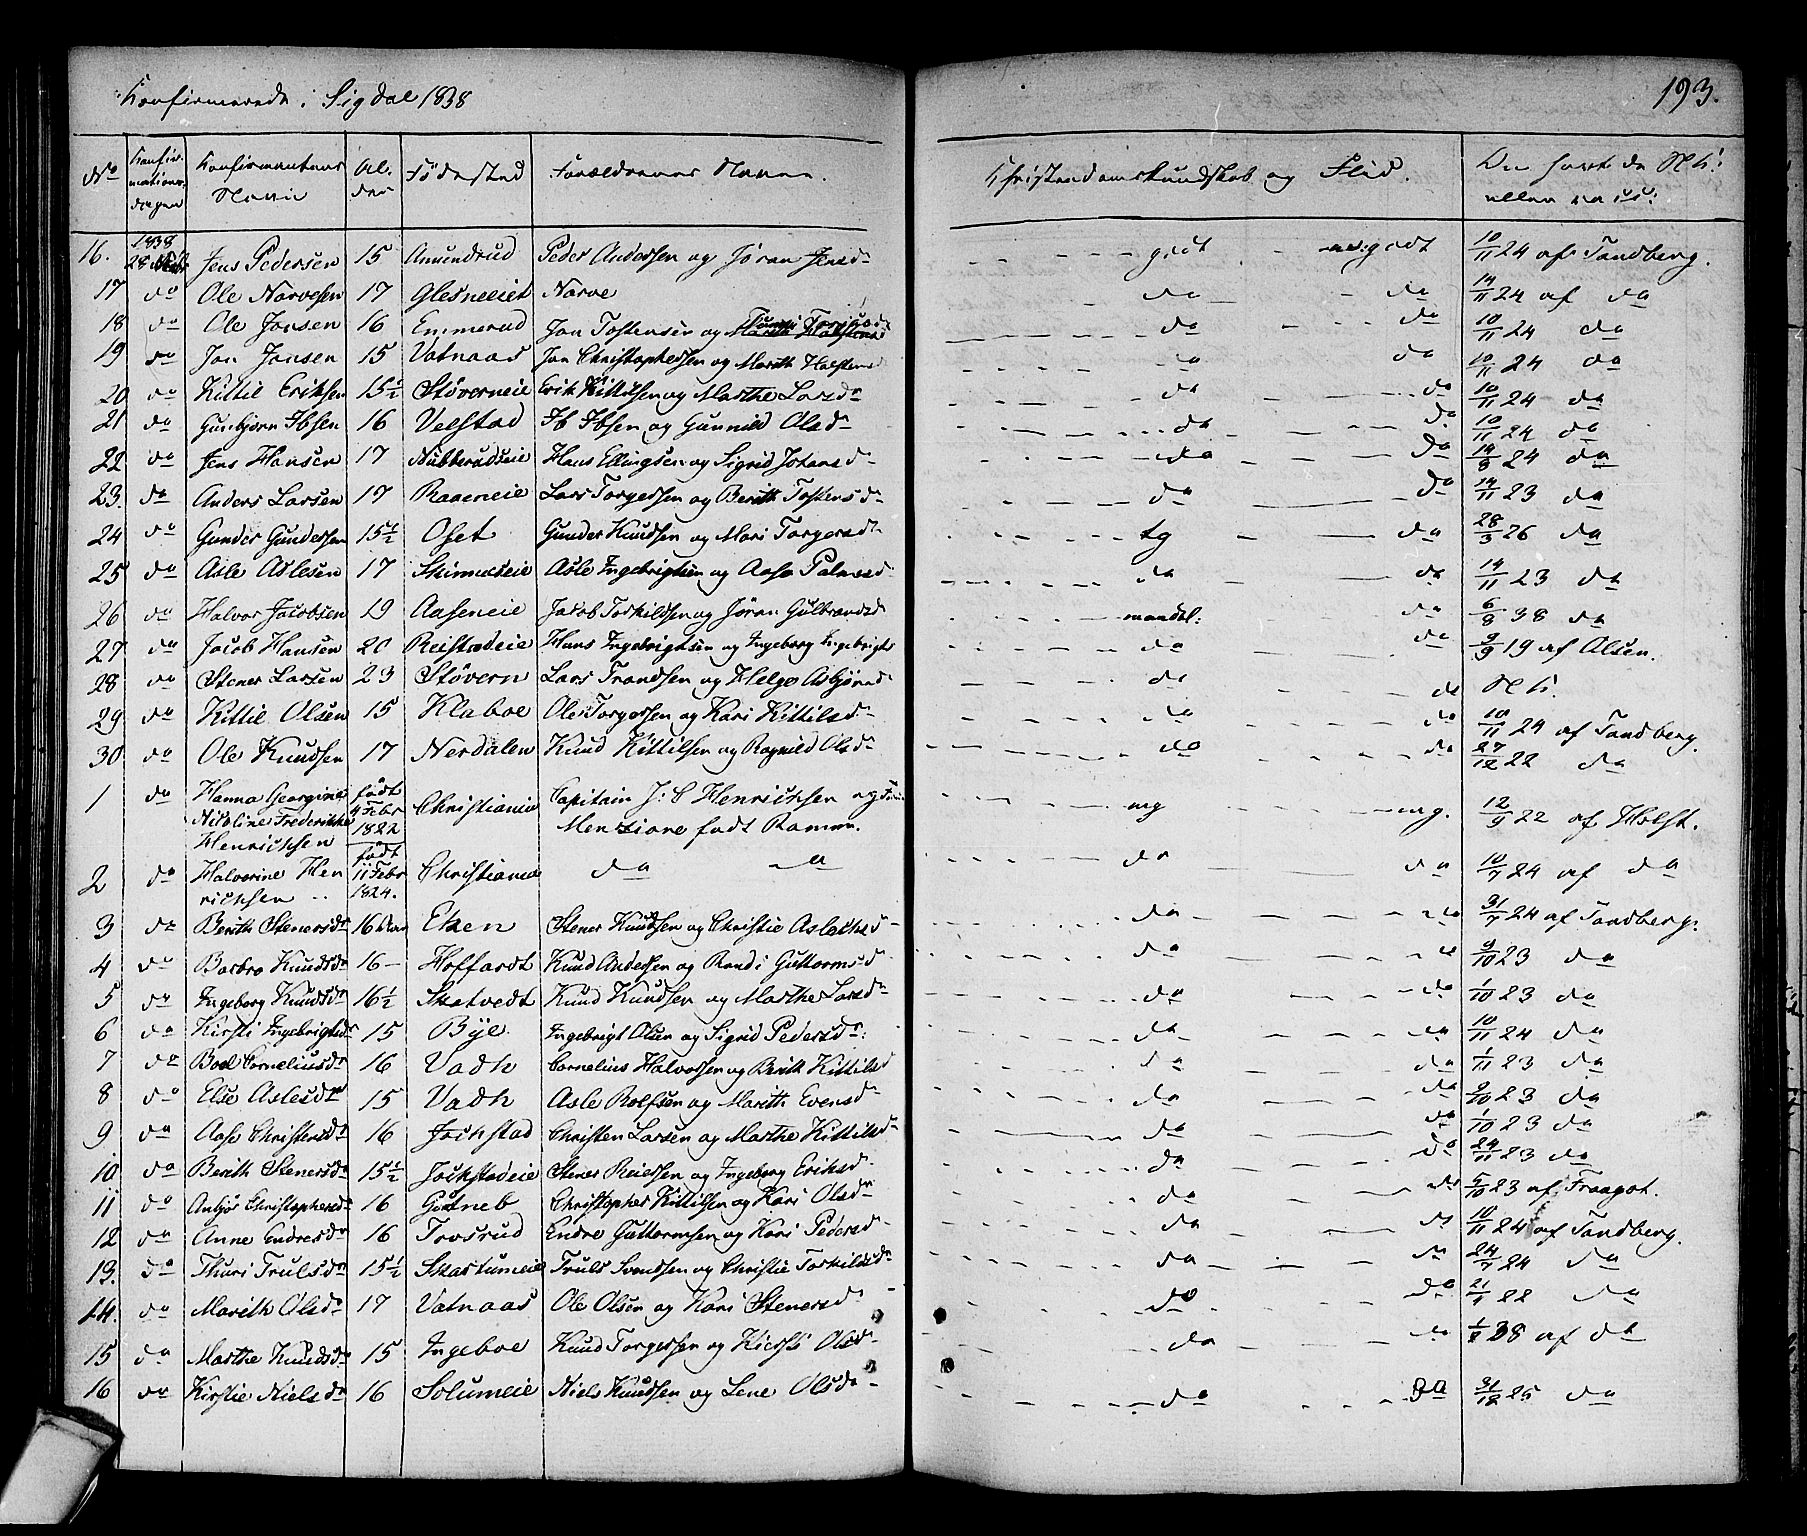 Confirmerede i Sigdal 1838
193.
No Confir- mations- dagen Confirmantens Navn Al- der Födested Forældrenes Navne. Christendomskundskab og Flid.
16. 1838 28 Jens Pedersen 15 Amundrud Peder Andersen og Jöran Jensd. godt godt 10/11 24 af Tandberg.
17 do Ole Narvesen 17 Glesneeiet Narve do do 14/11 24 af do
18 do Ole Jonsen 16 Emmerud Jon Tostensen og do do 10/11 24 do
19 do Jon Jonsen 15 Vatnaas Jon Christophersen og Marith Halstens do do 10/11 24 do
20 do Kittil Eriksen 15½ Stöverneie Erik Kittilsen og Marthe Larsd do do 10/11 24 do
21 do Gunbjörn Ibsen 16 Velstad Ib Ibsen og Gunnild Olsdr do do 10/11 24 do
22 do Jens Hansen 17 Nubberudseie Hans Ellingsen og Sigrid Johansd do do 14/3 24 do
23. do Anders Larsen 17 Raaeneie Lars Torgersen og Berith Tostensdr do do 14/11 23 do
24 do Gunder Gundersen 15½ Oset Gunder Knudsen og Mari Torgersdr tg do 28/3 26 do
25 do Asle Aslesen 17 Skinneseie Asle Ingebrigtsen og Aase Palmesd do do 14/11 23 do
26 do Halvor Jacobsen 19 Aaseneie Jacob Torkildsen og Jöran Gulbrandsd maadel: do 6/8 38 do
27 do Jacob Hansen 20 Reistadeie Hans Ingebrigtsen og Ingeborg Ingebrigts do do 9/9 19 af Olsen.
28 do Stener Larsen 23 Stövern Lars Trondsen og Helge Asbjörnsd do do
29 do Kittil Olsen 15 Klaboe Ole Torgersen og Kari Kittilsd. do do 10/11 24 af Tandberg.
30 do Ole Knudsen 17 Nerdalen Knud Kittilsen og Ragnild Olsd do do 27/12 22 do
1 do Hanna Georgine Nicoline Frederikke Henrichsen född 4 Febr 1822 Christiania Capitain J: C Henrichsen og född Ramm. mg mg. 12/9 22 af Holst.
2 do Halvorine Henrichsen född 11 Febr 1824. Christiania do do do do 10/7 24 af do
3 do Berith Stenersdr 16 Eken Stener Knudsen og Christie Aslaksd do do 31/7 24 af Tandberg.
4 do Barbro Knudsdr 16 Hoffardt Knud Andersen og Randi Guttormsd do do 9/10 23 do
5 do Ingeborg Knudsdr 16½ Skatvedt Knud Knudsen og Marthe Larsd do do 1/10 23 do
6 do Kirsti Ingebrigtsdr 15 Bye Ingebrigt Olsen og Sigrid Pedersd: do do 10/11 24 do
7 do Boel Corneliusdr 16 Vadh Cornelius Halvorsen og Berith Kittilsd do do 1/11 23 do
8 do Else Aslesdr 15 Vadh Asle Rolfsen og Marith Evensd do do 9/10 23 do
9 do Aase Christensdr 16 Jockstad Christen Larsen og Marthe Kittilsd do do 1/10 23 do
10 do Berith Stenersdr 15½ Jockstadeie Stener Reiersen og Ingeborg Eriksd do do 24/11 23 do
11 do Anbjör Christophersdr 16 Götneb Christopher Kittilsen og Kari Olsdr do do 5/10 23 af Fraagot.
12 do Anne Endresdr 16 Tovsrud Endre Guttormsen og Kari Pedersd do do 10/11 24 af Tandberg.
13. do Thuri Trulsdr 15½ Skartumeie Truls Svendsen og Christie Torkildsdr do do 24/7 24 do
14. do Marith Olsdr 17 Vatnaas Ole Olsen og Kari Stenersd do do 21/1 22 do
15 do Marthe Knudsdr 15 Ingeboe Knud Torgersen og Kirsti Olsd do do 38 af do
16 do Kirstie Nielsdr 16 Solumeie Niels Knudsen og Lene Olsd do do 31/12 25 do